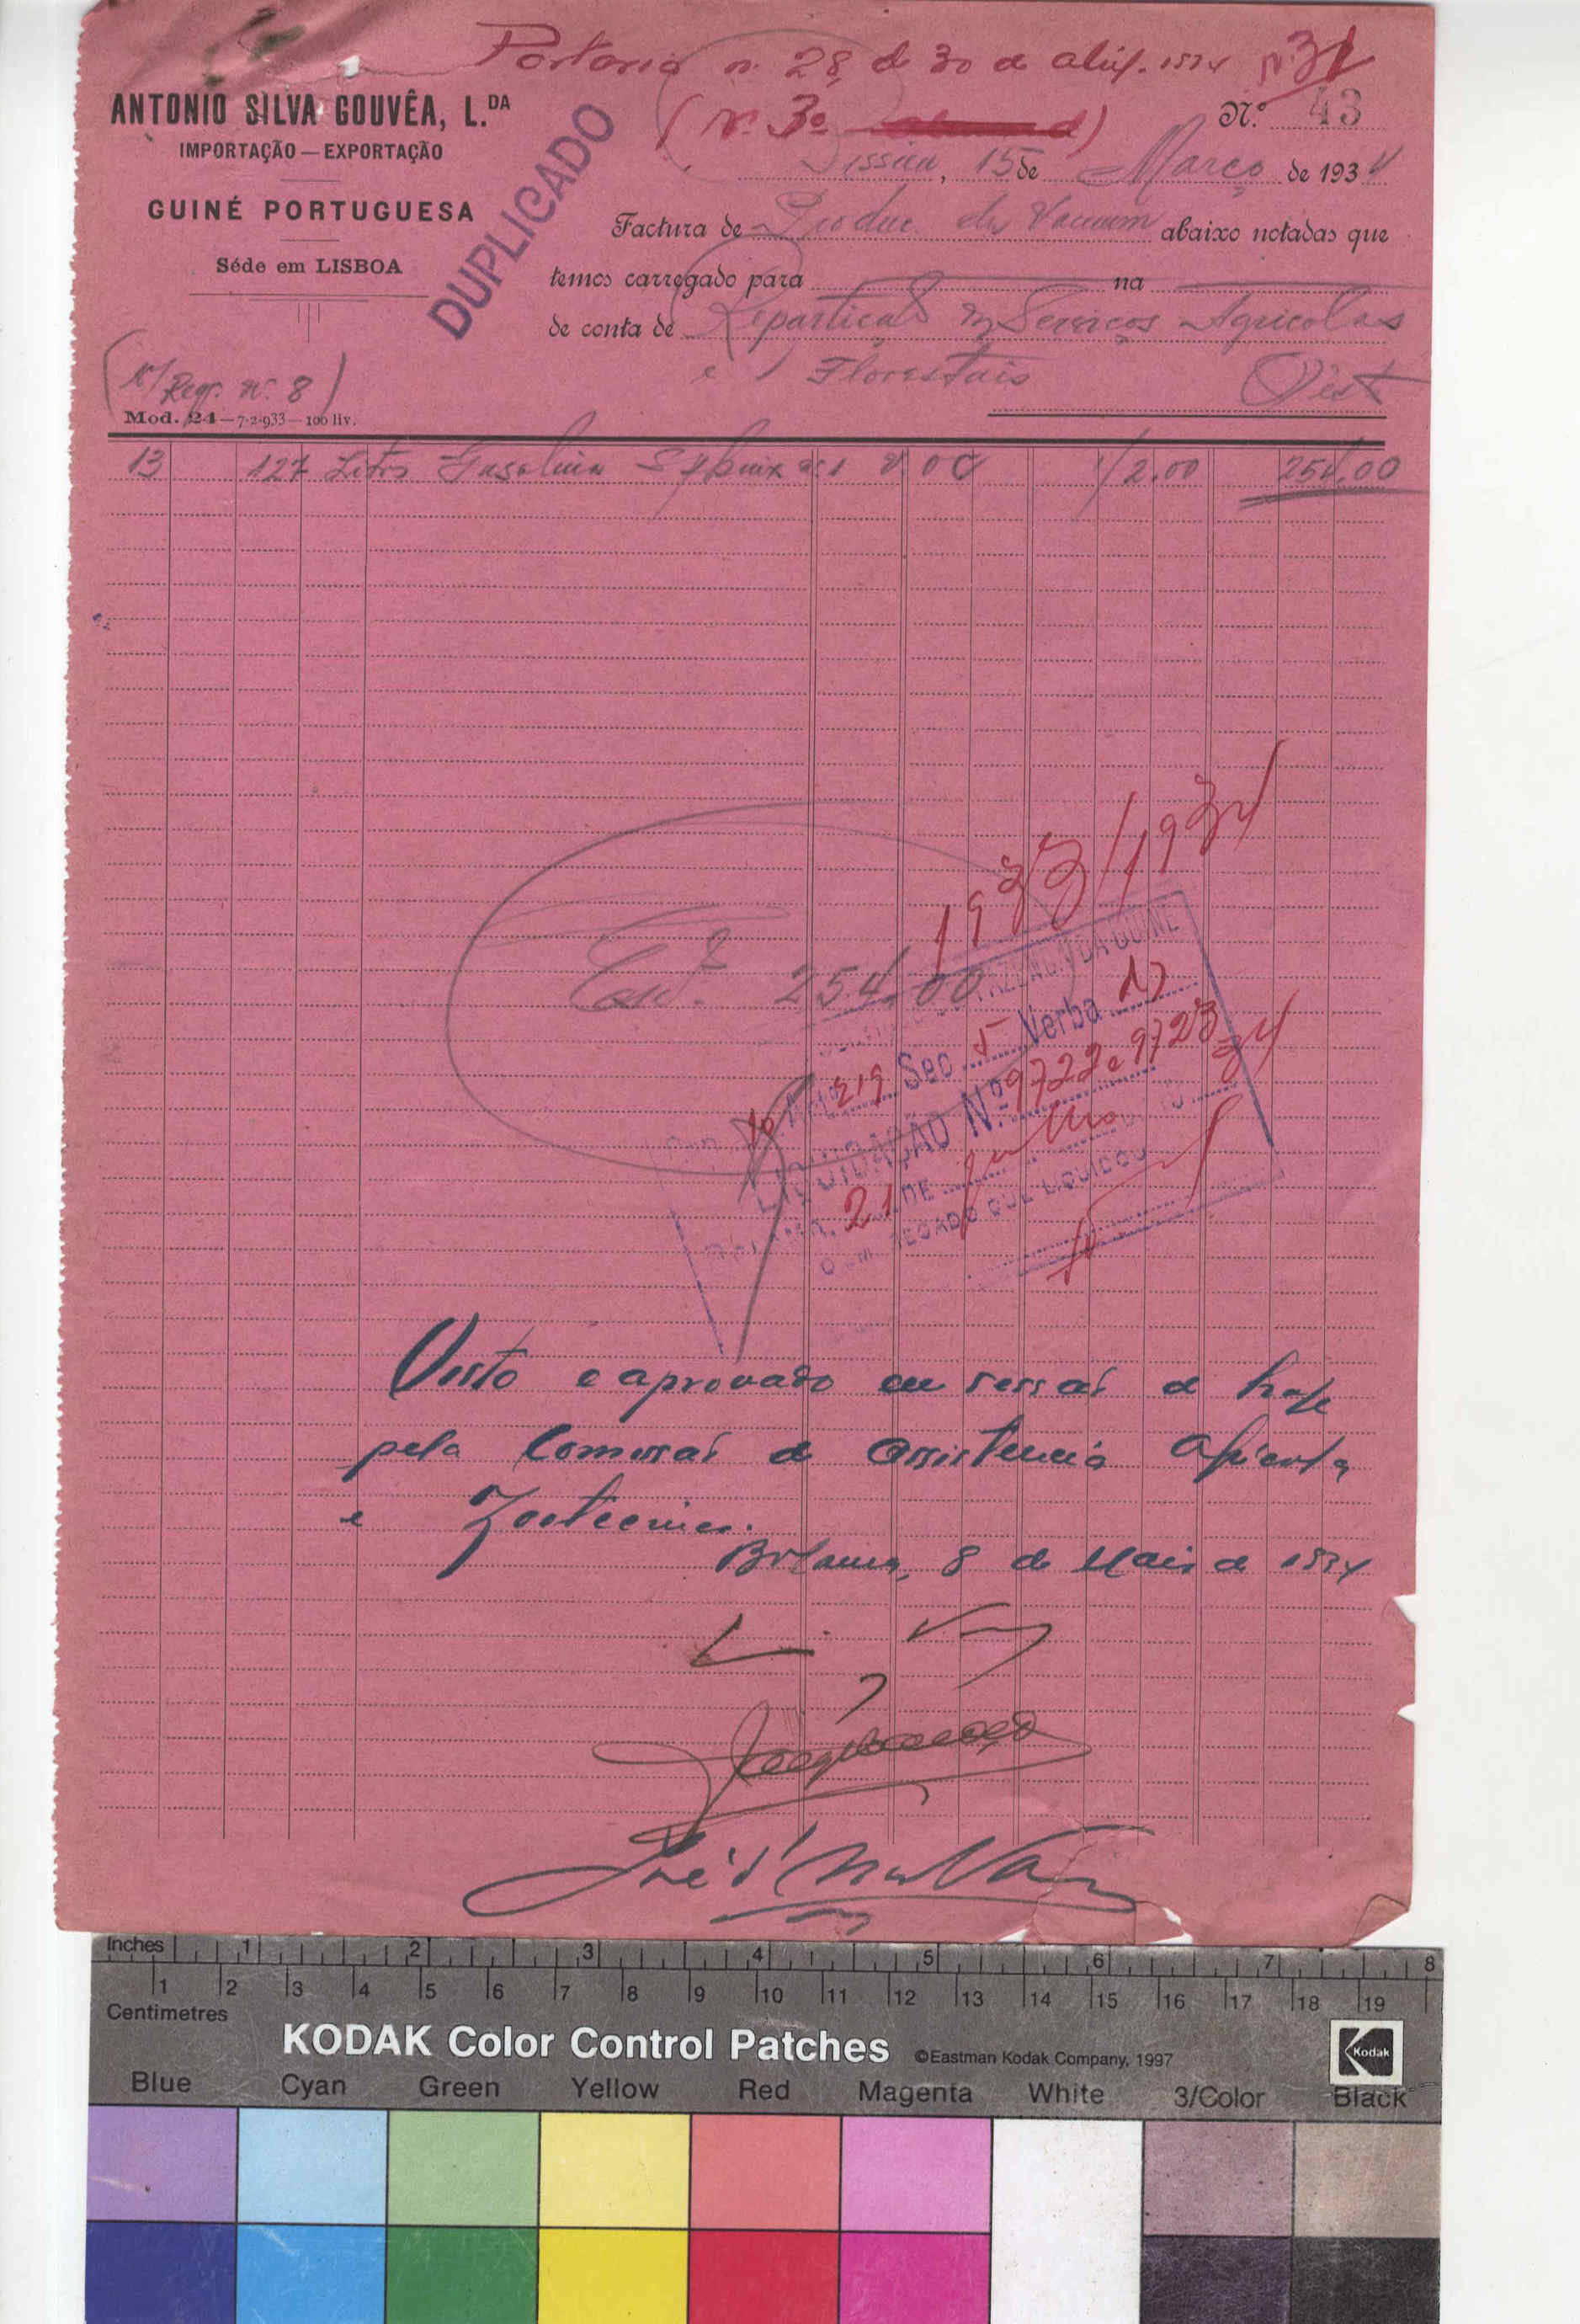 Portaria n. 28, de 30 de abril. 1934 nº 31
(Nº 3º)
ANTONIO SILVA GOUVÊA, L.DA
IMPORTAÇÃO — EXPORTAÇÃO
GUINÉ PORTUGUESA
Séde em LISBOA
DUPLICADO
N.º 43
Bissau, 15 de Março de 1934
Factura de Produc. da Vacuum abaixo notadas que
temos carregado para na
de conta de Repartição dos Serviços Agricolas
e Florestais
(N/ Reqr. nº. 8)
Mod. 24 — 7-2-933 — 100 liv.
13 127 Litros Gasolina 1/2.00 254.00
1933/1934
Esc. 254.00
FAZENDA DA GUINÉ
Cap. 10 Art. 219 Sec. 5 Verba
LIQUIDAÇÃO N.º 9722 e 9723
21 DE Julho 34
O EMPREGADO QUE LIQUIDOU
Visto e aprovado em sessão de hoje
pela Comissão de Assistencia Agricola
e Zootecnica.
Bolama, 8 de Maio de 1934
Inches 1 2 3 4 5 6 7 8
1 2 3 4 5 6 7 8 9 10 11 12 13 14 15 16 17 18 19
Centimetres
KODAK Color Control Patches ©Eastman Kodak Company, 1997 Kodak
Blue Cyan Green Yellow Red Magenta White 3/Color Black